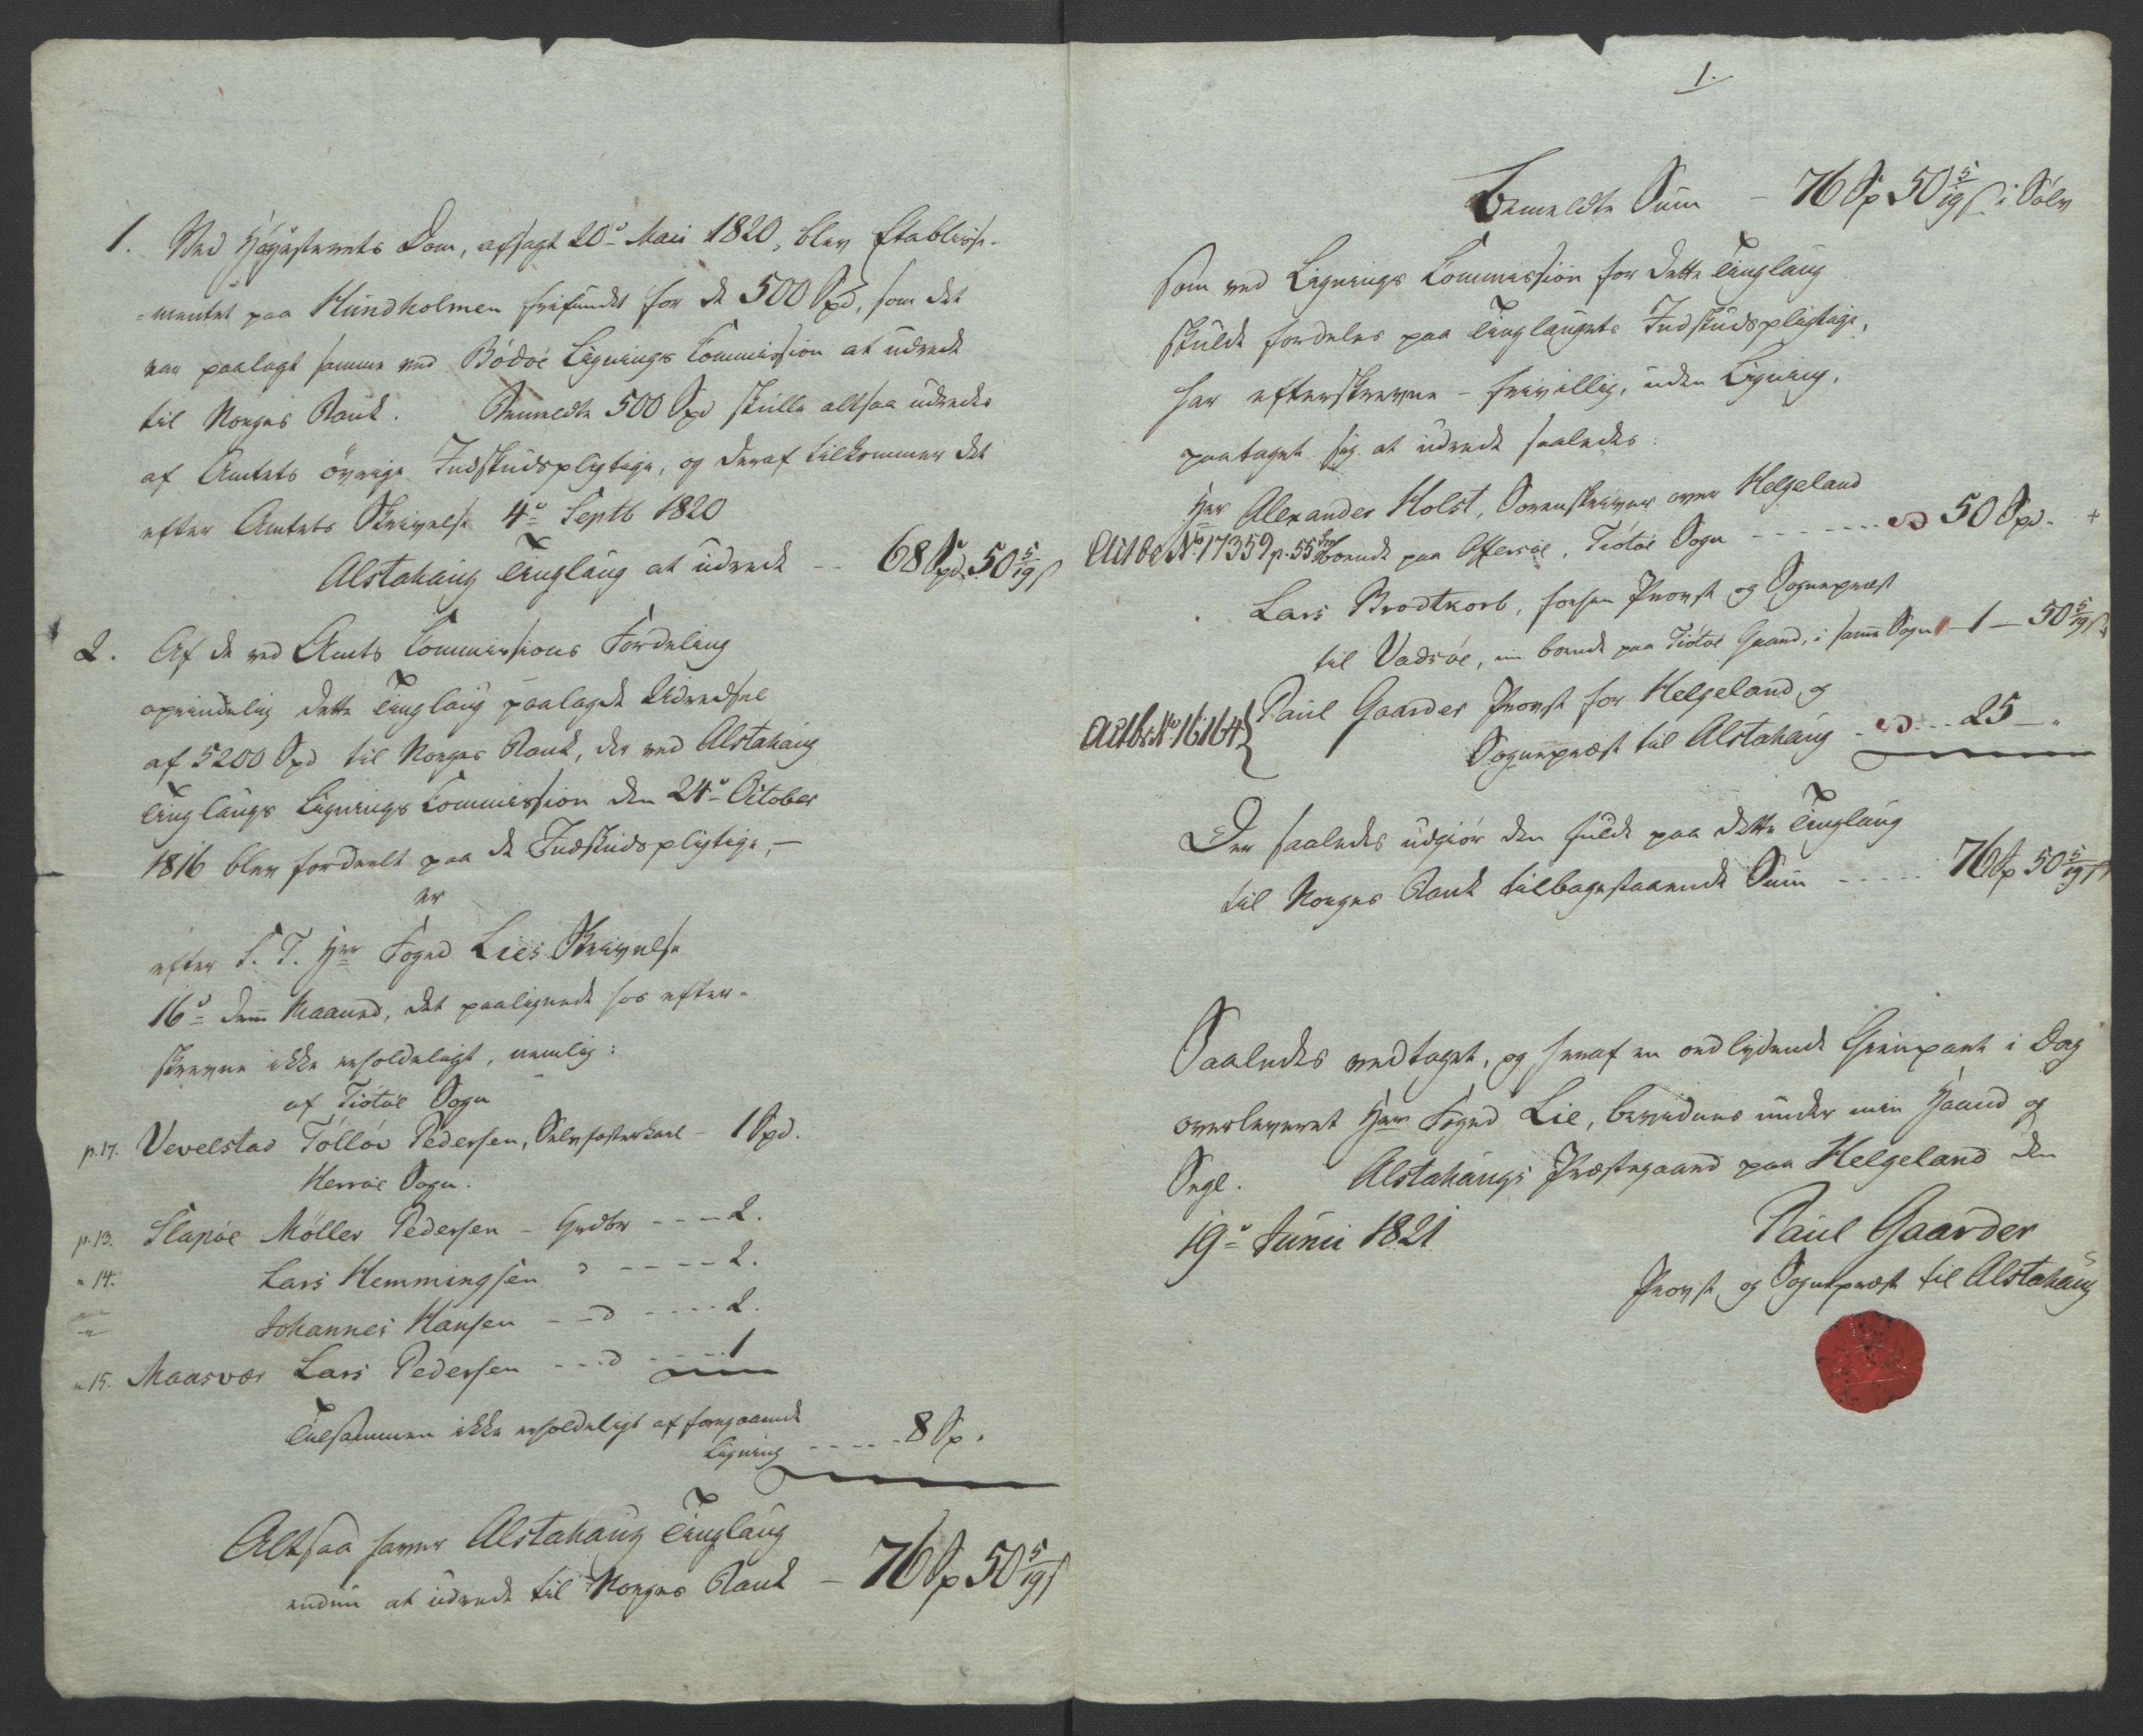 1. Ved Høyesterets Dom, afsagt 20de Maii 1820, blev Etablisse-
=mentet paa Hundholmen frifundet for de 500 Spd, som det
var paalagt samme ved Bódóe Lignings Commission at udrede
til Norges Bank. Bemeldte 500 Spd skulle altsaa udredes
af Amtets óvrige Indskudspligtige, og deraf tilkommer det
efter Amtets Skrivelse 4de Septb 1820
Alstahaug Tinglaug at udrede -- 68 Spd 50 5/19 s
2. Af de ved Amts Commissions Fordeling
oprindelig dette Tinglaug paalagde Udredsel
af 5200 Spd til Norges Bank, der ved Alstahaug
Tinglaugs Lignings Commission den 24de October
1816 blev fordeelt paa de Indskudspligtige, —
er
efter S. T. Herr Foged Lies Skrivelse
16de dennes Maaned, det paalignede hos efter-
skrevne ikke erholdeligt, nemlig:
af Tiótóe Sogn
p.17. Vevelstad Tóllóv Pedersen, Selvfosterkarl - 1 Spd.
Herróe Sogn.
p.13. Slapóe Móller Pedersen - Grdbr --- 2.
" 14. Lars Hemmingsen d ---- 2.
" Johannes Hansen -- d ---- 2.
" 15. Maasvær Lars Pedersen --- d ---- 1
Tilsammen ikke erholdeligt af foregaaende
Ligning ----- 8 Sp.
Altsaa haver Alstahaug Tinglaug
endnu at udrede til Norges Bank - 76 Sp 50 5/19 s
1.
Bemeldte Sum - 76 Sp 50 5/19 s i Sólv
som ved Lignings Commission for dette Tinglaug
skulde fordeles paa Tinglaugets Indskudspligtige,
har efterskrevne - frivillig, uden Ligning,
paataget sig at udrede saaledes:
Herr Alexander Holst, Sorenskriver over Helgeland
Actbr No 17359 p. 55 boende paa Offersóe, Tiótóe Sogn ----- 50 Spd. +
Lars Brodtkorb, forhen Provst og Sognepræst
til Vadsóe, nu boende paa Tiótóe Gaard, i samme Sogn - 1 — 50 5/19 s
Actbr. No 16164 } Paul Gaarder Provst for Helgeland og
Sognepræst til Alstahaug --- 25 — "
Der saaledes udgiór den fulde paa dette Tinglaug
til Norges Bank tilbagestaaende Sum ----- 76 Sp 50 5/19 s
Saaledes vedtaget, og heraf en ordlydende Gienpart i Dag
overleveret Herr Foged Lie, bevidnes under min Haand og
Segl. Alstahaugs Præstegaard paa Helgeland den
19de Junii 1821
Paul Gaarder
Provst og Sognepræst til Alstahaug